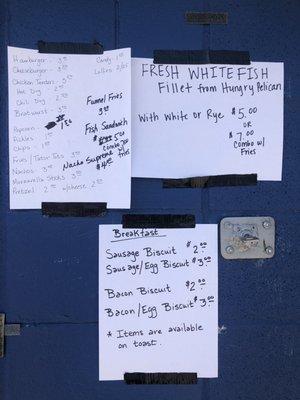 Hamburger - 3.00
Cheeseburger - 3.00
Chicken Tenders 3.00
Hot Dog 2.00
Chili Dog 2.00
Bratwurst - 3.00
Popcorn - 1.00
Pickles - 1.00
Chips - 1.00
Fries / Tator Tots 3.00
Nachos 3.00
Mozzarella Sticks 3.00
Pretzel 2.00 w/cheese 2.50
Candy - 1.00
Funnel Fries
3.00
Fish Sandwich
5.00
Combo 7.00 w/ fries
Nacho Supreme
$4.00
FRESH WHITEFISH
Fillet from Hungry Pelican
With White or Rye $5.00
OR
$7.00
Combo w/
Fries
Breakfast
Sausage Biscuit $2.00
Sausage/Egg Biscuit $3.00
Bacon Biscuit $2.00
Bacon/Egg Biscuit $3.00
* Items are available
on toast.